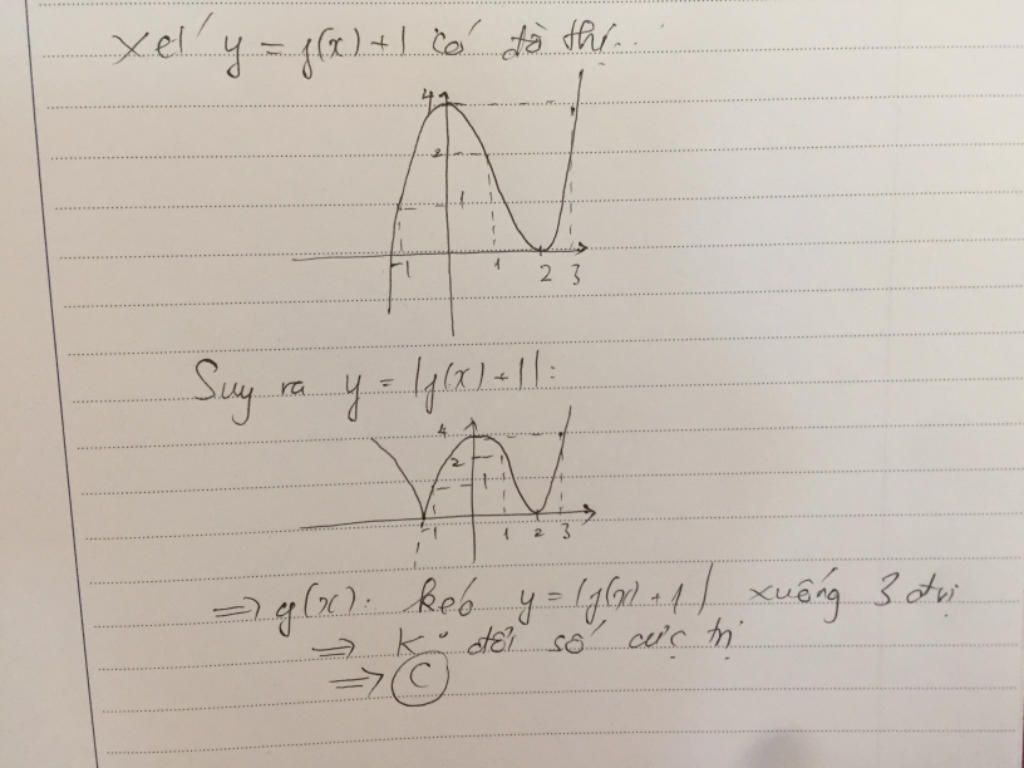 Xét y = f(x) + 1 có đồ thị...
4
2
1
-1 1 2 3
Suy ra y = |f(x) + 1|:
4
2
1
-1 1 2 3
=> g(x): kéo y = |f(x) + 1| xuống 3 đvị
=> K° đổi số cực trị
=> C